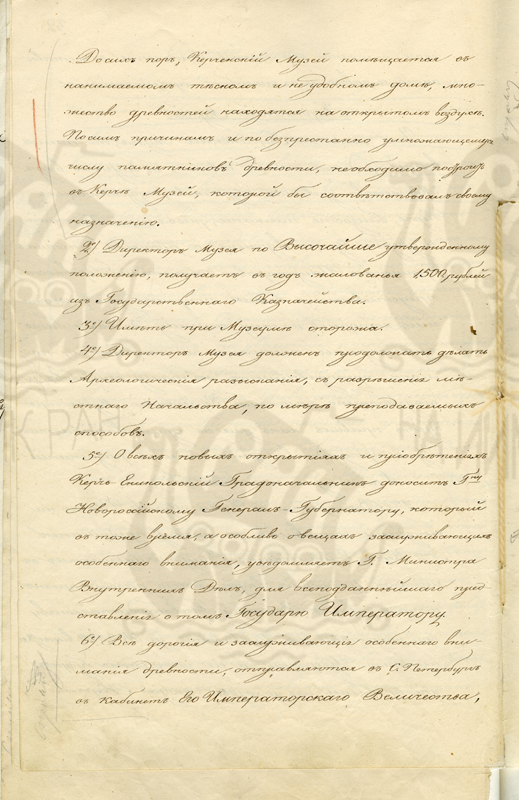 До сихъ поръ, Керченскій Музей помѣщается въ
нанимаемомъ тѣсномъ и не удобномъ домѣ, мно-
жество древностей находятся на открытомъ воздухѣ.
По симъ причинамъ и по безпрестанно умножающемуся
числу памятниковъ древности, необходимо построить
въ Керчѣ Музей, которой бы соотвѣтствовалъ своему
назначенію.
2е/ Директоръ Музея по Высочайше утвержденному
положенію, получаетъ въ годъ жалованья 1500 рублей
изъ Государственнаго Казначейства.
3е/ Имѣть при Музеумѣ сторожа.
4е/ Директоръ Музея долженъ продолжать дѣлать
Археологическія разысканія, съ разрѣшенія мѣ-
стнаго Начальства, по мѣрѣ преподаваемыхъ
способовъ.
5е/ О всѣхъ новыхъ открытіяхъ и пріобрѣтеніяхъ
Керчь Еникольскій Градоначальникъ доноситъ Гну
Новороссійскому Генералъ-Губернатору, который
въ тоже время, а особливо о вещахъ заслуживающихъ
особеннаго вниманія, увѣдомляетъ Г. Министра
Внутреннихъ Дѣлъ, для всеподданнѣйшаго пред-
ставленія о томъ Государю Императору.
6е/ Всѣ дорогія и заслуживающія особеннаго вни-
манія древности, отправляются въ С. Петербургъ
въ Кабинетъ Его Императорскаго Величества,
КР
НА